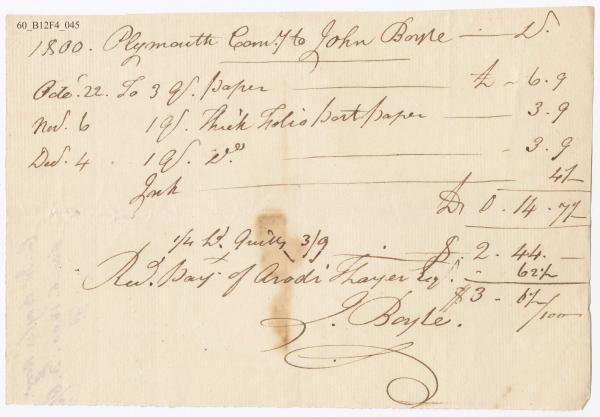 60_B12F4_045
1800. Plymouth Comy to John Boyle — Dr.
Octor. 22. To 3 Qr. paper — £ - 6. 9
Nov. 6 1 Qr. Thick Folio Post paper — 3. 9
Decr. 4 1 Qr. Do — 3. 9
Ink — 4½
£ 0. 14. 7½
$ 2. 44. —
1/4 Hd. Quills 3/9 . - 62½
Recd. Pay. of Arodi Thayer Esqr. $3 - 6½/100
J. Boyle.